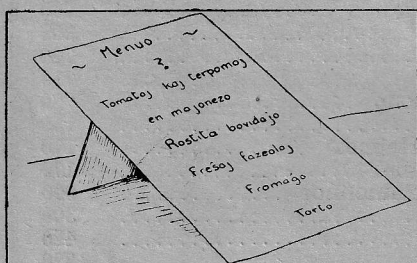 ~ Menuo ~
?
Tomatoj kaj terpomoj
en majonezo
Rostita bovidajo
Freŝaj fazeoloj
Fromaĝo
Torto